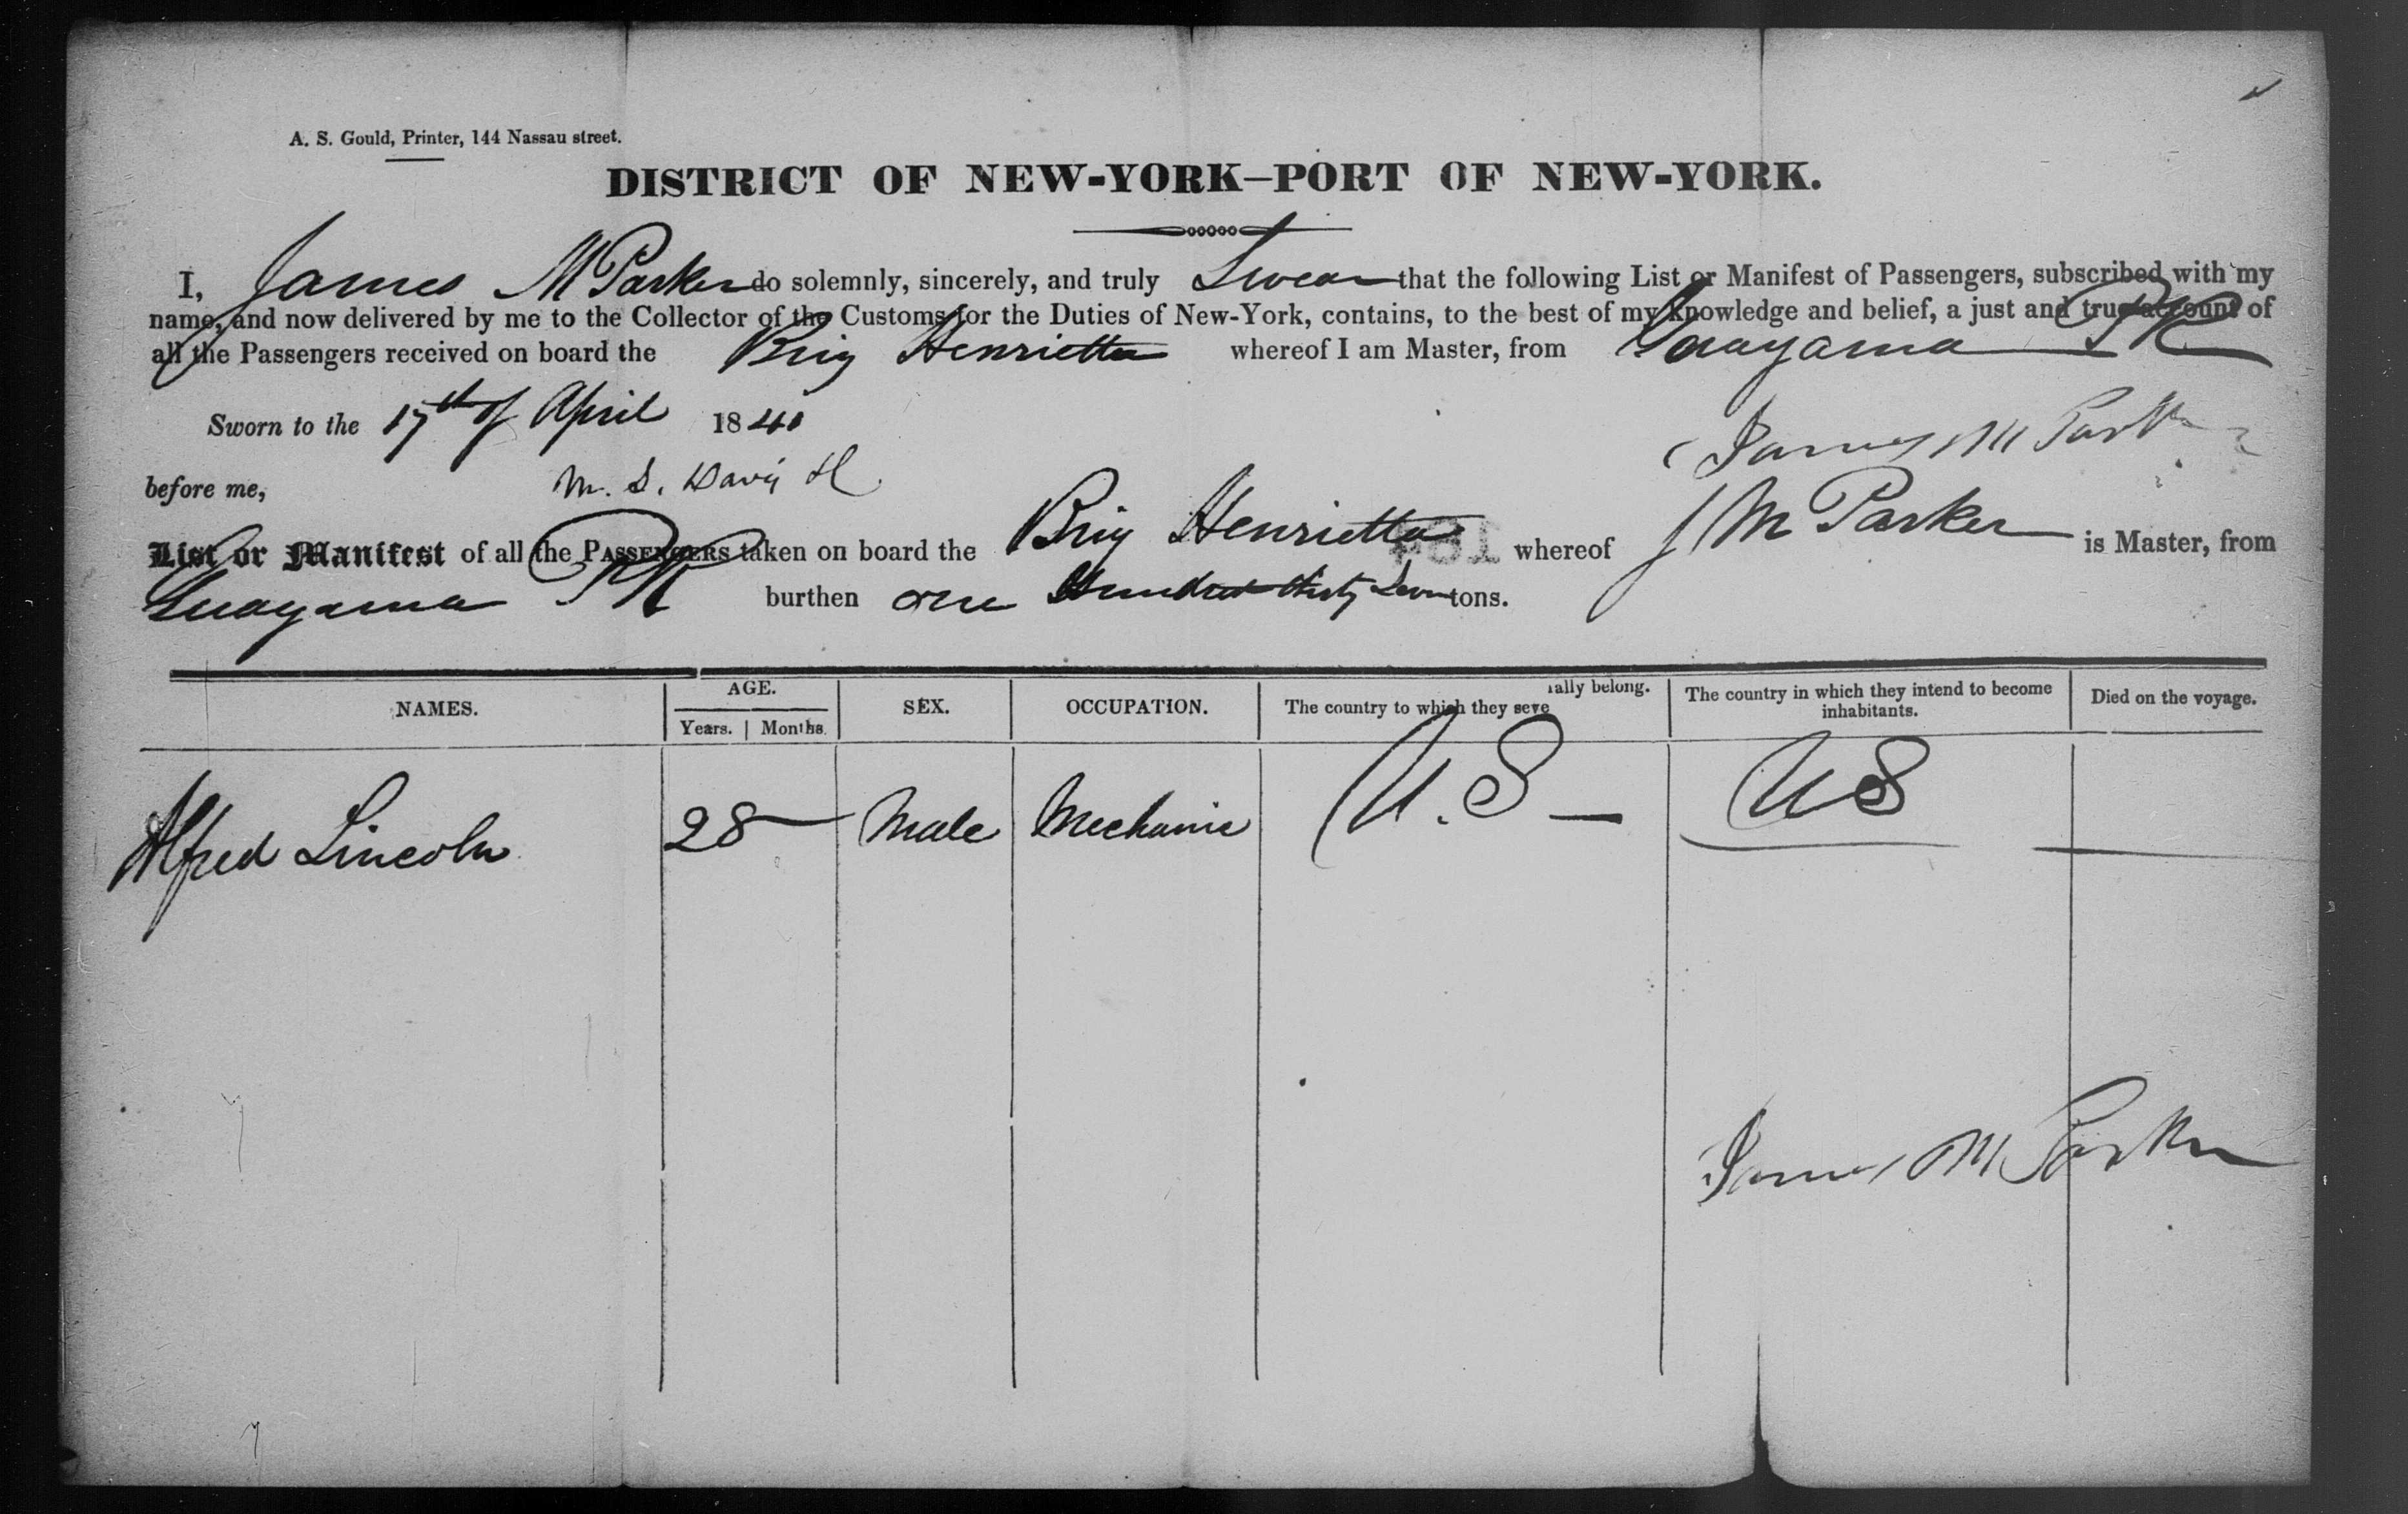 A. S. Gould, Printer, 144 Nassau street.
DISTRICT OF NEW-YORK—PORT OF NEW-YORK.
I, James M Parker do solemnly, sincerely, and truly Swear that the following List or Manifest of Passengers, subscribed with my
name, and now delivered by me to the Collector of the Customs for the Duties of New-York, contains, to the best of my knowledge and belief, a just and true account of
all the Passengers received on board the Brig Henrietta whereof I am Master, from Guayama PR
Sworn to the 17th of April 1840
James M Parker
before me, M. S. Davis
List or Manifest of all the PASSENGERS taken on board the Brig Henrietta whereof J M Parker is Master, from
Guayama PR burthen one Hundred thirty Seven tons.
NAMES. AGE. Years. Months. SEX. OCCUPATION. The country to which they seve rally belong. The country in which they intend to become inhabitants. Died on the voyage.
Alfred Lincoln 28 Male Mechanic U. S — U S
James M Parker